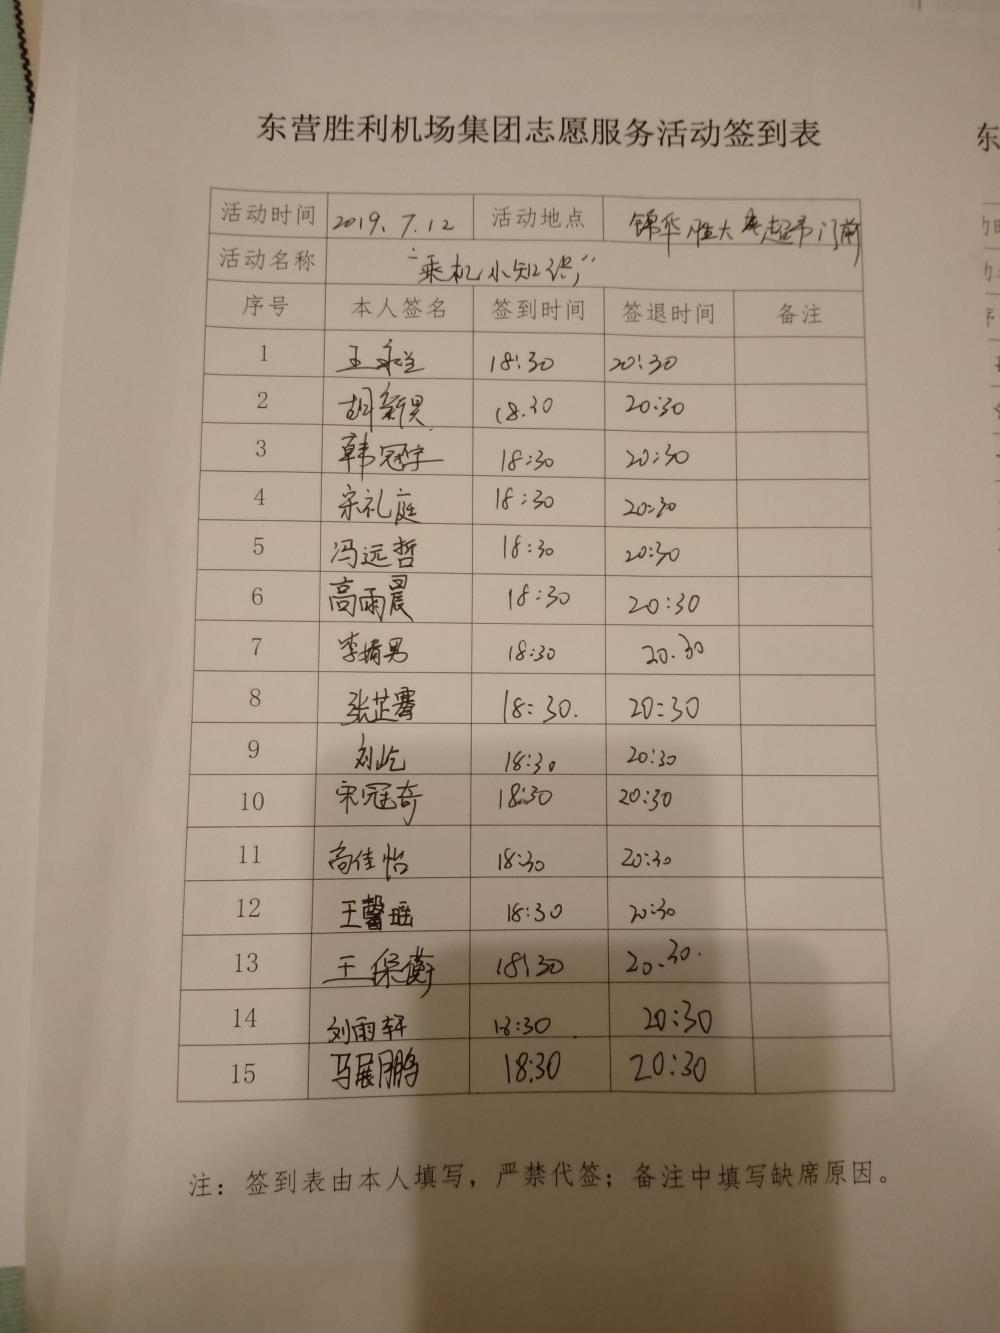 东营胜利机场集团志愿服务活动签到表
活动时间 2019.7.12 活动地点 锦华胜大超市门前
活动名称 "乘机小知识"
序号 本人签名 签到时间 签退时间 备注
1 王 18:30 20:30
2 胡新昊 18.30 20:30
3 韩冠宇 18:30 20:30
4 宋礼庭 18:30 20:30
5 冯远哲 18:30 20:30
6 高雨晨 18:30 20:30
7 李婧男 18:30 20.30
8 张芷骞 18:30. 20:30
9 刘屹 18:30 20:30
10 宋冠奇 18:30 20:30
11 高佳怡 18:30 20:30
12 王馨瑶 18:30 20:30
13 王保衡 18:30 20.30.
14 刘雨轩 18:30 20:30
15 马展鹏 18:30 20:30
注：签到表由本人填写，严禁代签；备注中填写缺席原因。
东